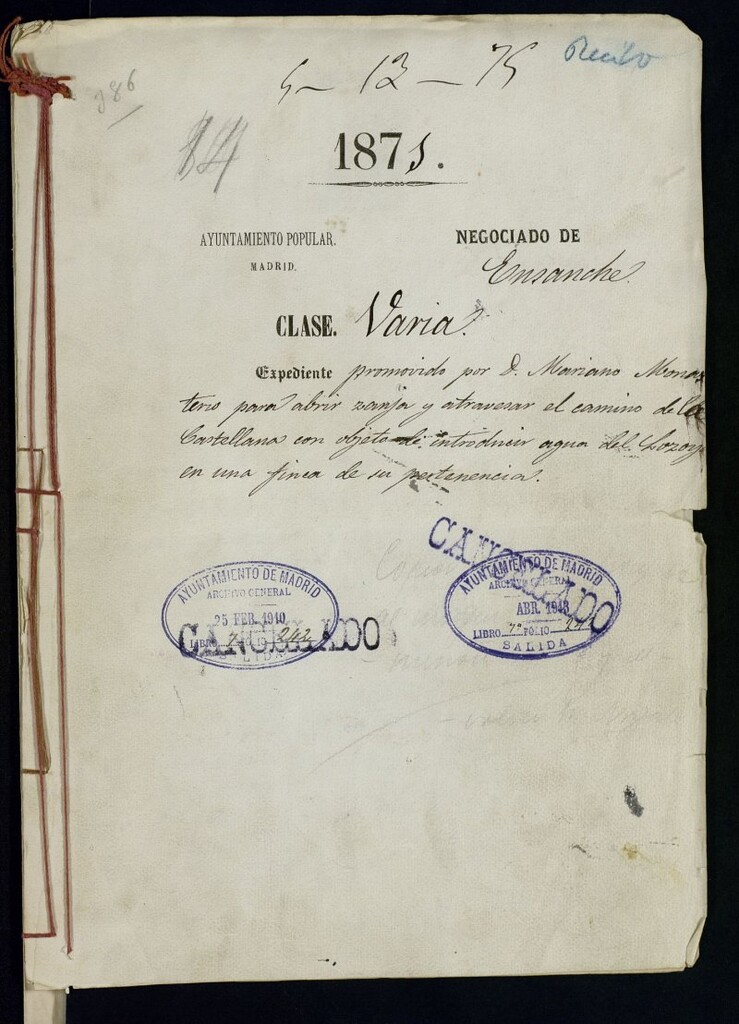 Recibo
386
5-13-75
14
1871.
AYUNTAMIENTO POPULAR.
MADRID.
NEGOCIADO DE
Ensanche.
CLASE. Varia.
Expediente promovido por D. Mariano Monas
terio para abrir zanja y atravesar el camino de la
Castellana con objeto de introducir agua del Lozoya
en una finca de su pertenencia.
AYUNTAMIENTO DE MADRID
ARCHIVO GENERAL
25 FEB. 1910
LIBRO 7 FOLIO 242
SALIDA
CANCELADO
AYUNTAMIENTO DE MADRID
ARCHIVO GENERAL
ABR. 1913
LIBRO 7º FOLIO 27
SALIDA
CANCELADO